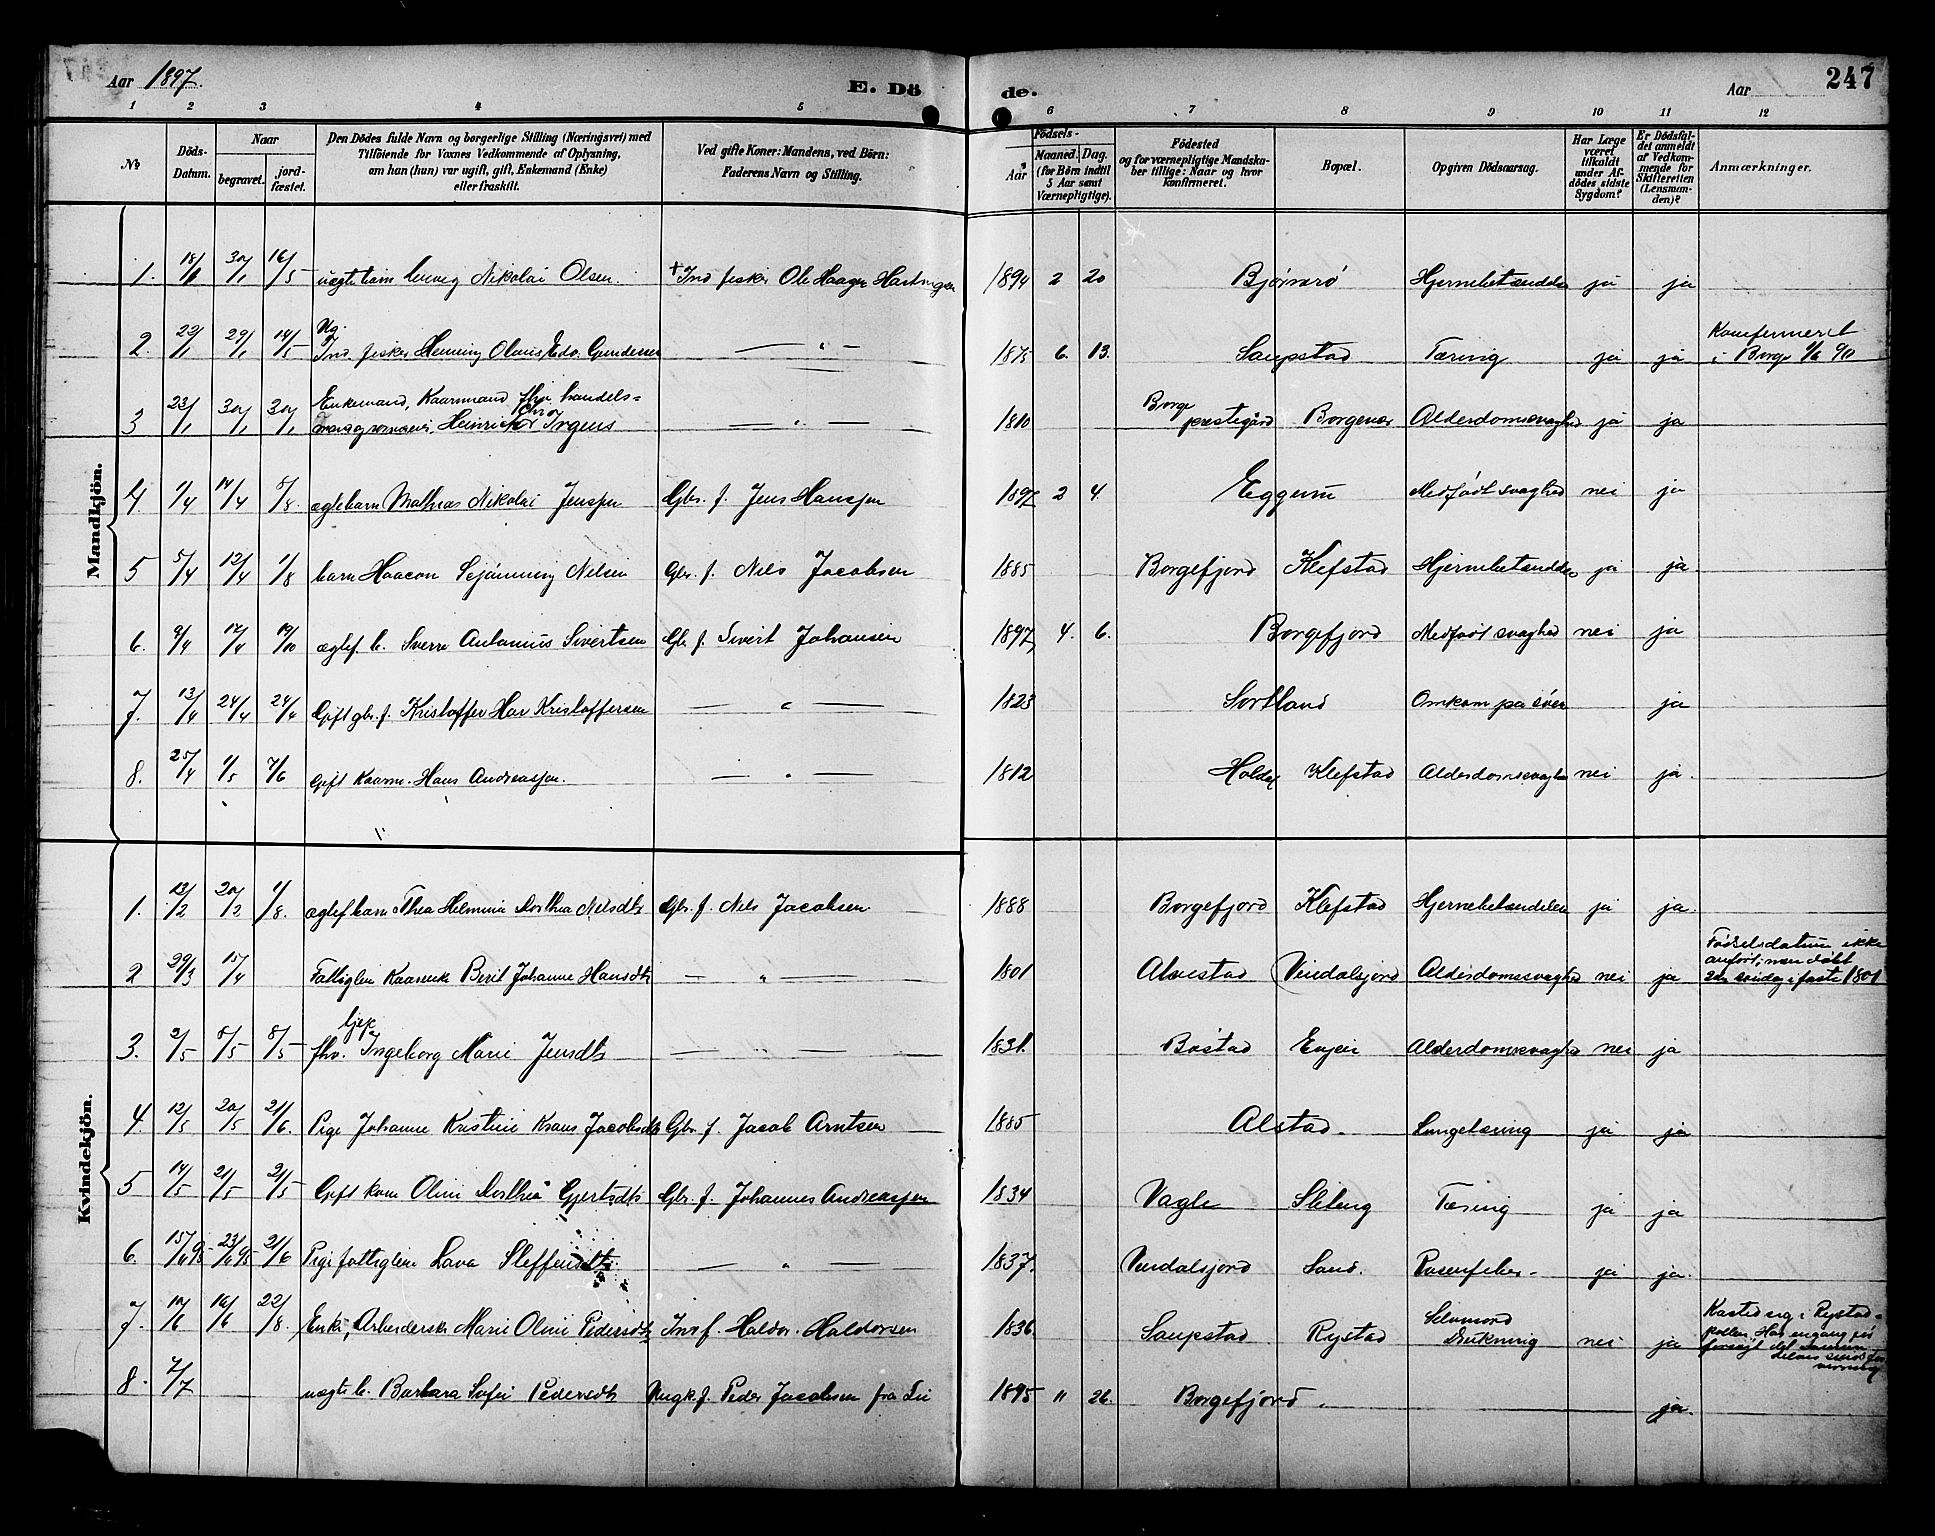 Aar 1897. E. Dö de. Aar 247
1 2 3 4 5 6 7 8 9 10 11 12
№ Döds-Datum. Naar begravet. jordfæstet. Den Dödes fulde Navn og borgerlige Stilling (Næringsvei) med Tilföiende for Voxnes Vedkommende af Oplysning, om han (hun) var ugift, gift, Enkemand (Enke) eller fraskilt. Ved gifte Koner: Mandens, ved Börn: Faderens Navn og Stilling. Födsels- Aar Maaned. Dag. (for Börn indtil 5 Aar samt Værnepligtige). Födested og for værnepligtige Mandskaber tillige: Naar og hvor Konfirmeret. Bopæl. Opgiven Dödsaarsag. Har Læge været tilkaldt under Afdödes sidste Sygdom? Er Dödsfaldet anmeldt af Vedkommende for Skifteretten (Lensmanden)? Anmærkninger.
Mandkjön.
1. 18/1 30/1 16/5 uægte barn Nikolai Olsen. + Ind fisker Ole Haagen 1894 2 20 Hjernebetændelse ja ja
2. 22/1 29/1 14/5 Ug. Ind. fisker Henning Olaus Edv. Gundersen — " — 1875 6. 13. Saupstad Tæring ja ja Konfirmeret i Borge 1/6 90
3 23/1 30/1 30/1 Enkemand, Kaarmand fhv. handels= Chr. Irgens — " — 1810 Borge prestegård Borgevær Alderdomssvaghed ja ja
4. 1/4 14/4 8/8. ægte barn Mathias Nikolai Jenssen Gbr. f. Jens Hanssen 1897 2 4. Eggum Medfødt svaghed nei ja
5 5/4 12/4 1/8 barn Haacon Nelsen Gbr. f. Nils Jacobsen 1885 Borgefjord Klefstad Hjernebetændelse ja ja.
6. 9/4 17/4 19/10 ægtef. b. Sverre Antonius Sivertsen Gb. f. Sivert Johansen 1897 4. 6. Borgefjord Medfødt svaghed nei ja
7. 13/4 24/4 24/4 Gift gbr. f. Kristoffer Har Kristoffersen — " — 1823 Sortland Omkom på søen ja
8. 25/4 1/5 7/6 Gift Kaarm. Hans Andreassen. — " — 1812 Klefstad Alderdomssvaghed nei ja.
Kvindekjön.
1. 13/2 20/2 1/8. ægtef barn Thea Helmine Dorthea Nelsdtr Gbr. f. Nels Jacobsen 1888 Borgefjord Klefstad Hjernebetændelse ja ja.
2 29/3 15/4 Fattiglem Kaarenke Berit Johanne Hansdtr — " — 1801 Alvestad Vindalsjord Alderdomssvaghed nei ja Fødselsdatum ikke anført, men døbt 2den søndag i faste 1801
3. 2/5 8/5 8/5 fhv. Gjep. Ingeborg Marie Jensdtr — " — 1831. Bøstad Evjen Alderdomssvaghed nei ja
4. 12/5 20/5 21/6. Pige Johanne Kristine Jacobsdtr Gbr. f. Jacob Arntsen 1885 Alstad. Lungetæring ja ja
5 14/5 21/5 21/5 Gift kone Oline Dorthea Gjertsdtr Gbr. f. Johannes Andreassen 1834 Vagle Tæring ja ja
6. 15/4 95 23/4 95 21/6 Pige fattiglem Lava Steffensdtr — " — 1837. Vendalsjord Sand. Rosenfeber. ja ja.
7. 10/6 16/6 22/8. Enke, Arbeiderske Marie Oline Pedersdtr Ind f. Haldor Haldorsen 1836 Saupstad Rystad Selvmord Drukning nei ja Kasted sig i Rystadpollen. Har engang før forsøgt det samme.
8. 7/7 uægte b. Barbara Sofie Pedersdtr Ungk. f. Peder Jacobsen fra Lie 1895 11 26. Borgefjord. ja.